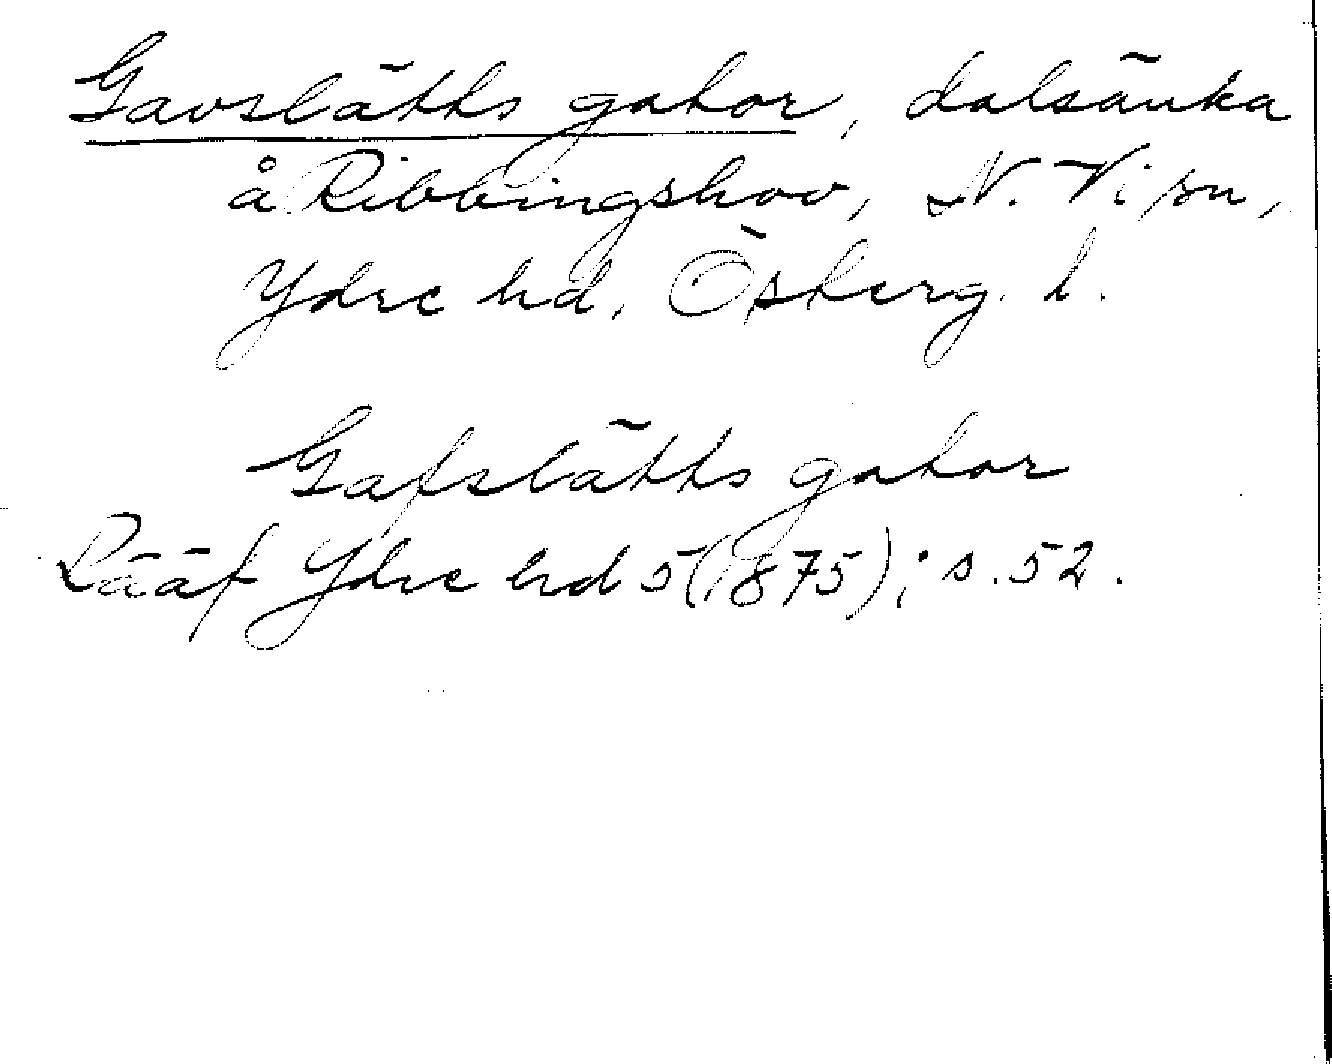 Gavslätts gator, dalsänka
å Ribbingshov, N. Vi sn,
Ydre hd, Österg. l.
Gafslätts gator
Rääf Ydre hd 5 (1875); s. 52.